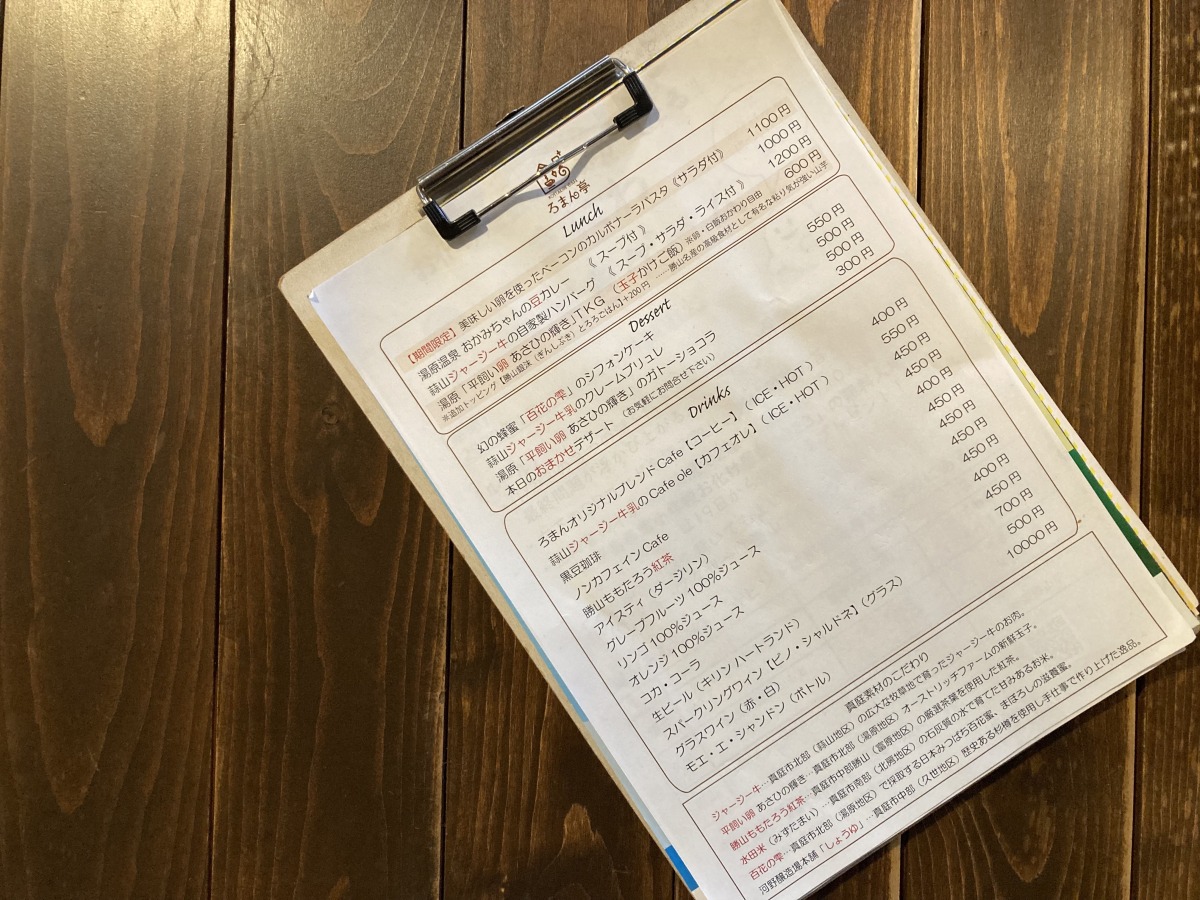 食堂
ろまん亭
Lunch
【期間限定】美味しい卵を使ったベーコンのカルボナーラパスタ《サラダ付》 1100円
湯原温泉 おかみちゃんの豆カレー 《スープ付》 1000円
蒜山ジャージー牛の自家製ハンバーグ 《スープ・サラダ・ライス付》 1200円
湯原「平飼い卵 あさひの輝き」TKG (玉子かけご飯) ※卵・白飯おかわり自由 600円
※追加トッピング【勝山銀沫(ぎんしぶき)とろろごはん】+200円 ……勝山名産の高級食材として有名な粘り気が強い山芋
Dessert
幻の蜂蜜「百花の雫」のシフォンケーキ 550円
蒜山ジャージー牛乳のクレームブリュレ 500円
湯原「平飼い卵 あさひの輝き」のガトーショコラ 500円
本日のおまかせデザート (お気軽にお問合せ下さい) 300円
Drinks
ろまんオリジナルブレンドCafe【コーヒー】(ICE・HOT) 400円
蒜山ジャージー牛乳のCafe ole【カフェオレ】(ICE・HOT) 550円
黒豆珈琲 450円
ノンカフェインCafe 450円
勝山ももたろう紅茶 400円
アイスティ(ダージリン) 450円
グレープフルーツ100%ジュース 450円
リンゴ100%ジュース 450円
オレンジ100%ジュース 450円
コカ・コーラ 400円
生ビール(キリン ハートランド) 450円
スパークリングワイン【ピノ・シャルドネ】(グラス) 700円
グラスワイン(赤・白) 500円
モエ・エ・シャンドン(ボトル) 10000円
真庭素材のこだわり
ジャージー牛…真庭市北部(蒜山地区)の広大な牧草地で育ったジャージー牛のお肉。
平飼い卵 あさひの輝き…真庭市北部(湯原地区)オーストリッチファームの新鮮玉子。
勝山ももたろう紅茶…真庭市中部勝山(富原地区)の厳選茶葉を使用した紅茶。
水田米(みずたまい)…真庭市南部(北房地区)の石灰質の水で育てた甘みあるお米。
百花の雫…真庭市北部(湯原地区)で採取する日本みつばち百花蜜、まぼろしの滋養蜜。
河野醸造場本舗「しょうゆ」…真庭市中部(久世地区)歴史ある杉樽を使用し手仕事で作り上げた逸品。